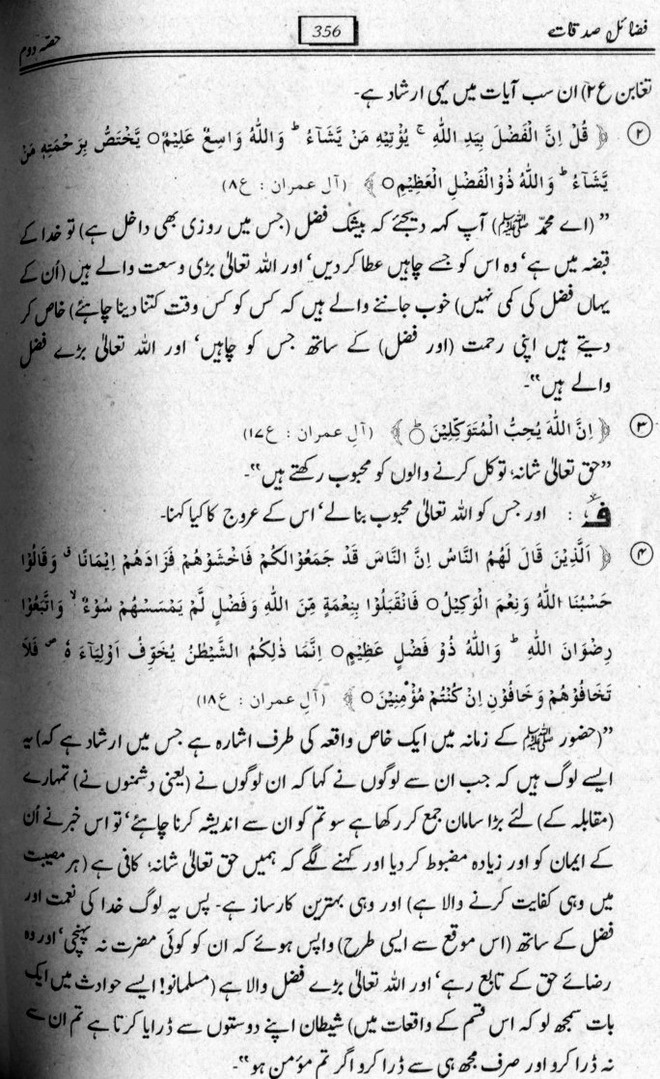 فضائل صدقات 356 حصّہ دوم
تغابن ع۲) ان سب آیات میں یہی ارشاد ہے۔
② ﴿ قُلْ اِنَّ الْفَضْلَ بِيَدِ اللّٰهِ ۚ يُؤْتِيْهِ مَنْ يَّشَآءُ ؕ وَاللّٰهُ وَاسِعٌ عَلِيْمٌ ○ يَّخْتَصُّ بِرَحْمَتِهٖ مَنْ
يَّشَآءُ ؕ وَاللّٰهُ ذُوالْفَضْلِ الْعَظِيْمِ ○ ﴾ (آل عمران : ع۸)
”(اے محمدؐ ﷺ) آپ کہہ دیجئے کہ بیشک فضل (جس میں روزی بھی داخل ہے) تو خدا کے
قبضہ میں ہے‘ وہ اس کو جسے چاہیں عطا کر دیں‘ اور اللہ تعالیٰ بڑی وسعت والے ہیں (اُن کے
یہاں فضل کی کمی نہیں) خوب جاننے والے ہیں کہ کس کو کس وقت کتنا دینا چاہئے) خاص کر
دیتے ہیں اپنی رحمت (اور فضل) کے ساتھ جس کو چاہیں‘ اور اللہ تعالیٰ بڑے فضل
والے ہیں“۔
③ ﴿ اِنَّ اللّٰهَ يُحِبُّ الْمُتَوَكِّلِيْنَ ○ؕ ﴾ (آلِ عمران : ع۱۷)
”حق تعالیٰ شانہٗ توکل کرنے والوں کو محبوب رکھتے ہیں“۔
ف : اور جس کو اللہ تعالیٰ محبوب بنا لے‘ اس کے عروج کا کیا کہنا۔
④ ﴿ اَلَّذِيْنَ قَالَ لَهُمُ النَّاسُ اِنَّ النَّاسَ قَدْ جَمَعُوْالَكُمْ فَاخْشَوْهُمْ فَزَادَهُمْ اِيْمَانًا ۖ وَقَالُوْا
حَسْبُنَا اللّٰهُ وَنِعْمَ الْوَكِيْلُ ○ فَانْقَلَبُوْا بِنِعْمَةٍ مِّنَ اللّٰهِ وَفَضْلٍ لَّمْ يَمْسَسْهُمْ سُوْءٌ ۙ وَاتَّبَعُوْا
رِضْوَانَ اللّٰهِ ؕ وَاللّٰهُ ذُوْ فَضْلٍ عَظِيْمٍ ○ اِنَّمَا ذٰلِكُمُ الشَّيْطٰنُ يُخَوِّفُ اَوْلِيَآءَ هٗ ۪ فَلَا
تَخَافُوْهُمْ وَخَافُوْنِ اِنْ كُنْتُمْ مُّؤْمِنِيْنَ ○ ﴾ (آلِ عمران : ع۱۸)
”(حضور ﷺ کے زمانہ میں ایک خاص واقعہ کی طرف اشارہ ہے جس میں ارشاد ہے کہ) یہ
ایسے لوگ ہیں کہ جب ان سے لوگوں نے کہا کہ ان لوگوں نے (یعنی دشمنوں نے) تمہارے
(مقابلہ کے) لئے بڑا سامان جمع کر رکھا ہے سو تم کو ان سے اندیشہ کرنا چاہئے‘ تو اس خبر نے اُن
کے ایمان کو اور زیادہ مضبوط کر دیا اور کہنے لگے کہ ہمیں حق تعالیٰ شانہٗ کافی ہے (ہر مصیبت
میں وہی کفایت کرنے والا ہے) اور وہی بہترین کارساز ہے۔ پس یہ لوگ خدا کی نعمت اور
فضل کے ساتھ (اس موقع سے ایسی طرح) واپس ہوئے کہ ان کو کوئی مضرت نہ پہنچی‘ اور وہ
رضائے حق کے تابع رہے‘ اور اللہ تعالیٰ بڑے فضل والا ہے (مسلمانو! ایسے حوادث میں ایک
بات سمجھ لو کہ اس قسم کے واقعات میں) شیطان اپنے دوستوں سے ڈرایا کرتا ہے تم ان سے
نہ ڈرا کرو اور صرف مجھ ہی سے ڈرا کرو اگر تم مؤمن ہو“۔